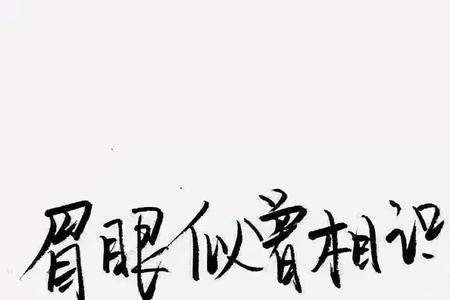 眉眼似曾相识